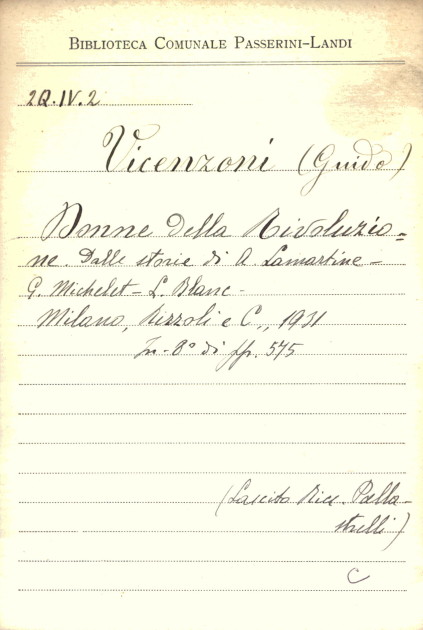 BIBLIOTECA COMUNALE PASSERINI-LANDI
2Q.IV.2
Vicenzoni (Guido)
Donne della Rivoluzio=
ne. Dalle storie di A. Lamartine -
G. Michelet - L. Blanc -
Milano, Rizzoli e C., 1931
In-8° di pp. 575
(Lascito Ricc. Palla-
strelli)
C